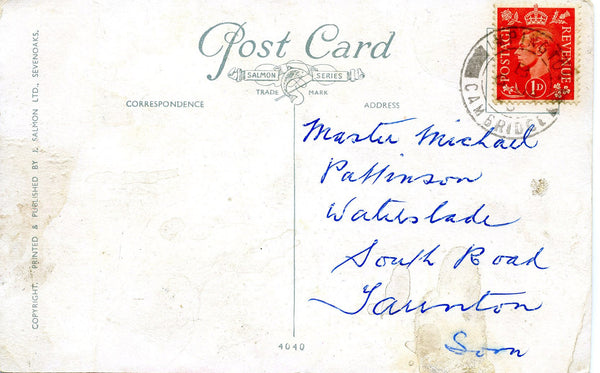 Post Card
SALMON SERIES
TRADE MARK
CORRESPONDENCE
ADDRESS
POSTAGE REVENUE
1D
CAMBRIDGE
Master Michael
Pattinson
Waterslade
South Road
Taunton
Som
4040
COPYRIGHT. PRINTED & PUBLISHED BY J. SALMON LTD., SEVENOAKS.